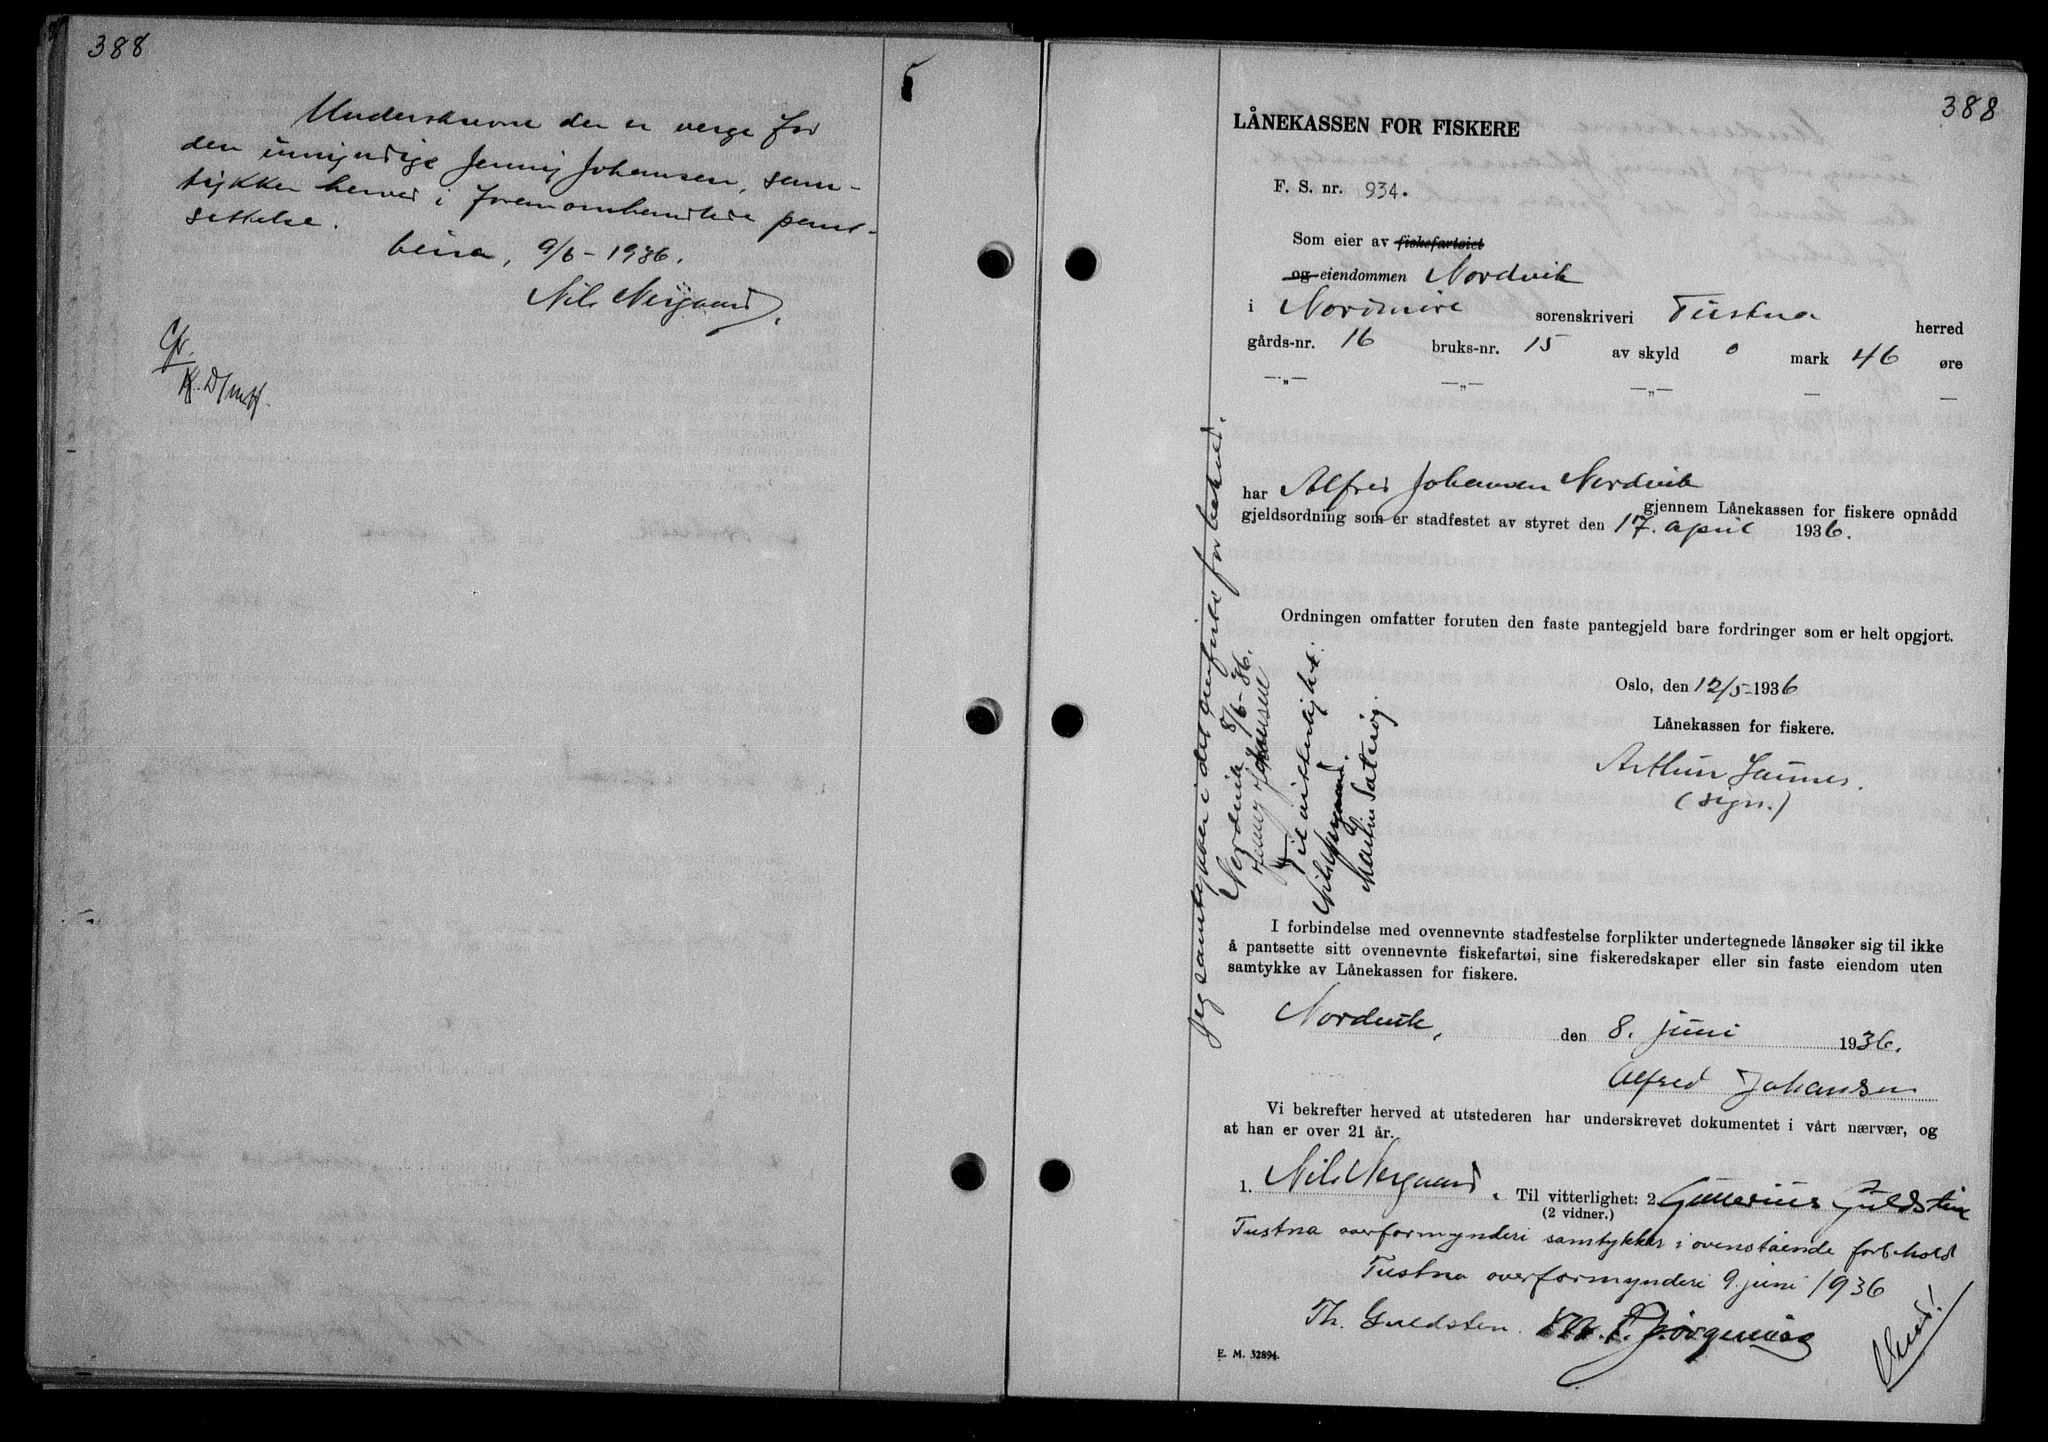 388
Underskrevne der er verge for
den umyndige Jenny Johansen, sam-
tykker herved i foranomhandlede pant-
settelse.
Leira, 9/6-1936.
Nils Nergaard
388
LÅNEKASSEN FOR FISKERE
F. S. nr. 934.
Som eier av fiskefartøiet
og eiendommen Nordvik
i Nordmøre sorenskriveri Tustna herred
gårds-nr. 16 bruks-nr. 15 av skyld 0 mark 46 øre
—„— —„— —„— — —
har Alfred Johansen Nordvik
gjennem Lånekassen for fiskere opnådd
gjeldsordning som er stadfestet av styret den 17. april 1936.
Ordningen omfatter foruten den faste pantegjeld bare fordringer som er helt opgjort.
Oslo, den 12/5-1936
Lånekassen for fiskere.
Arthur
(sign.)
Jeg samtykker i det omforente forbehold.
Nordvik 8/6-36.
Jenny Johansen
Til vitterlighet:
Nils Nergaard
Martin
I forbindelse med ovennevnte stadfestelse forplikter undertegnede lånsøker sig til ikke
å pantsette sitt ovennevnte fiskefartøi, sine fiskeredskaper eller sin faste eiendom uten
samtykke av Lånekassen for fiskere.
Nordvik, den 8. juni 1936.
Alfred Johansen
Vi bekrefter herved at utstederen har underskrevet dokumentet i vårt nærvær, og
at han er over 21 år.
1. Nils Nergaard. Til vitterlighet: 2. Gunerius Guldsten
(2 vidner.)
Tustna overformynderi samtykker i ovenstående forbehold
Tustna overformynderi 9. juni 1936
Th. Guldsten. Jørgensen
E. M. 32894.